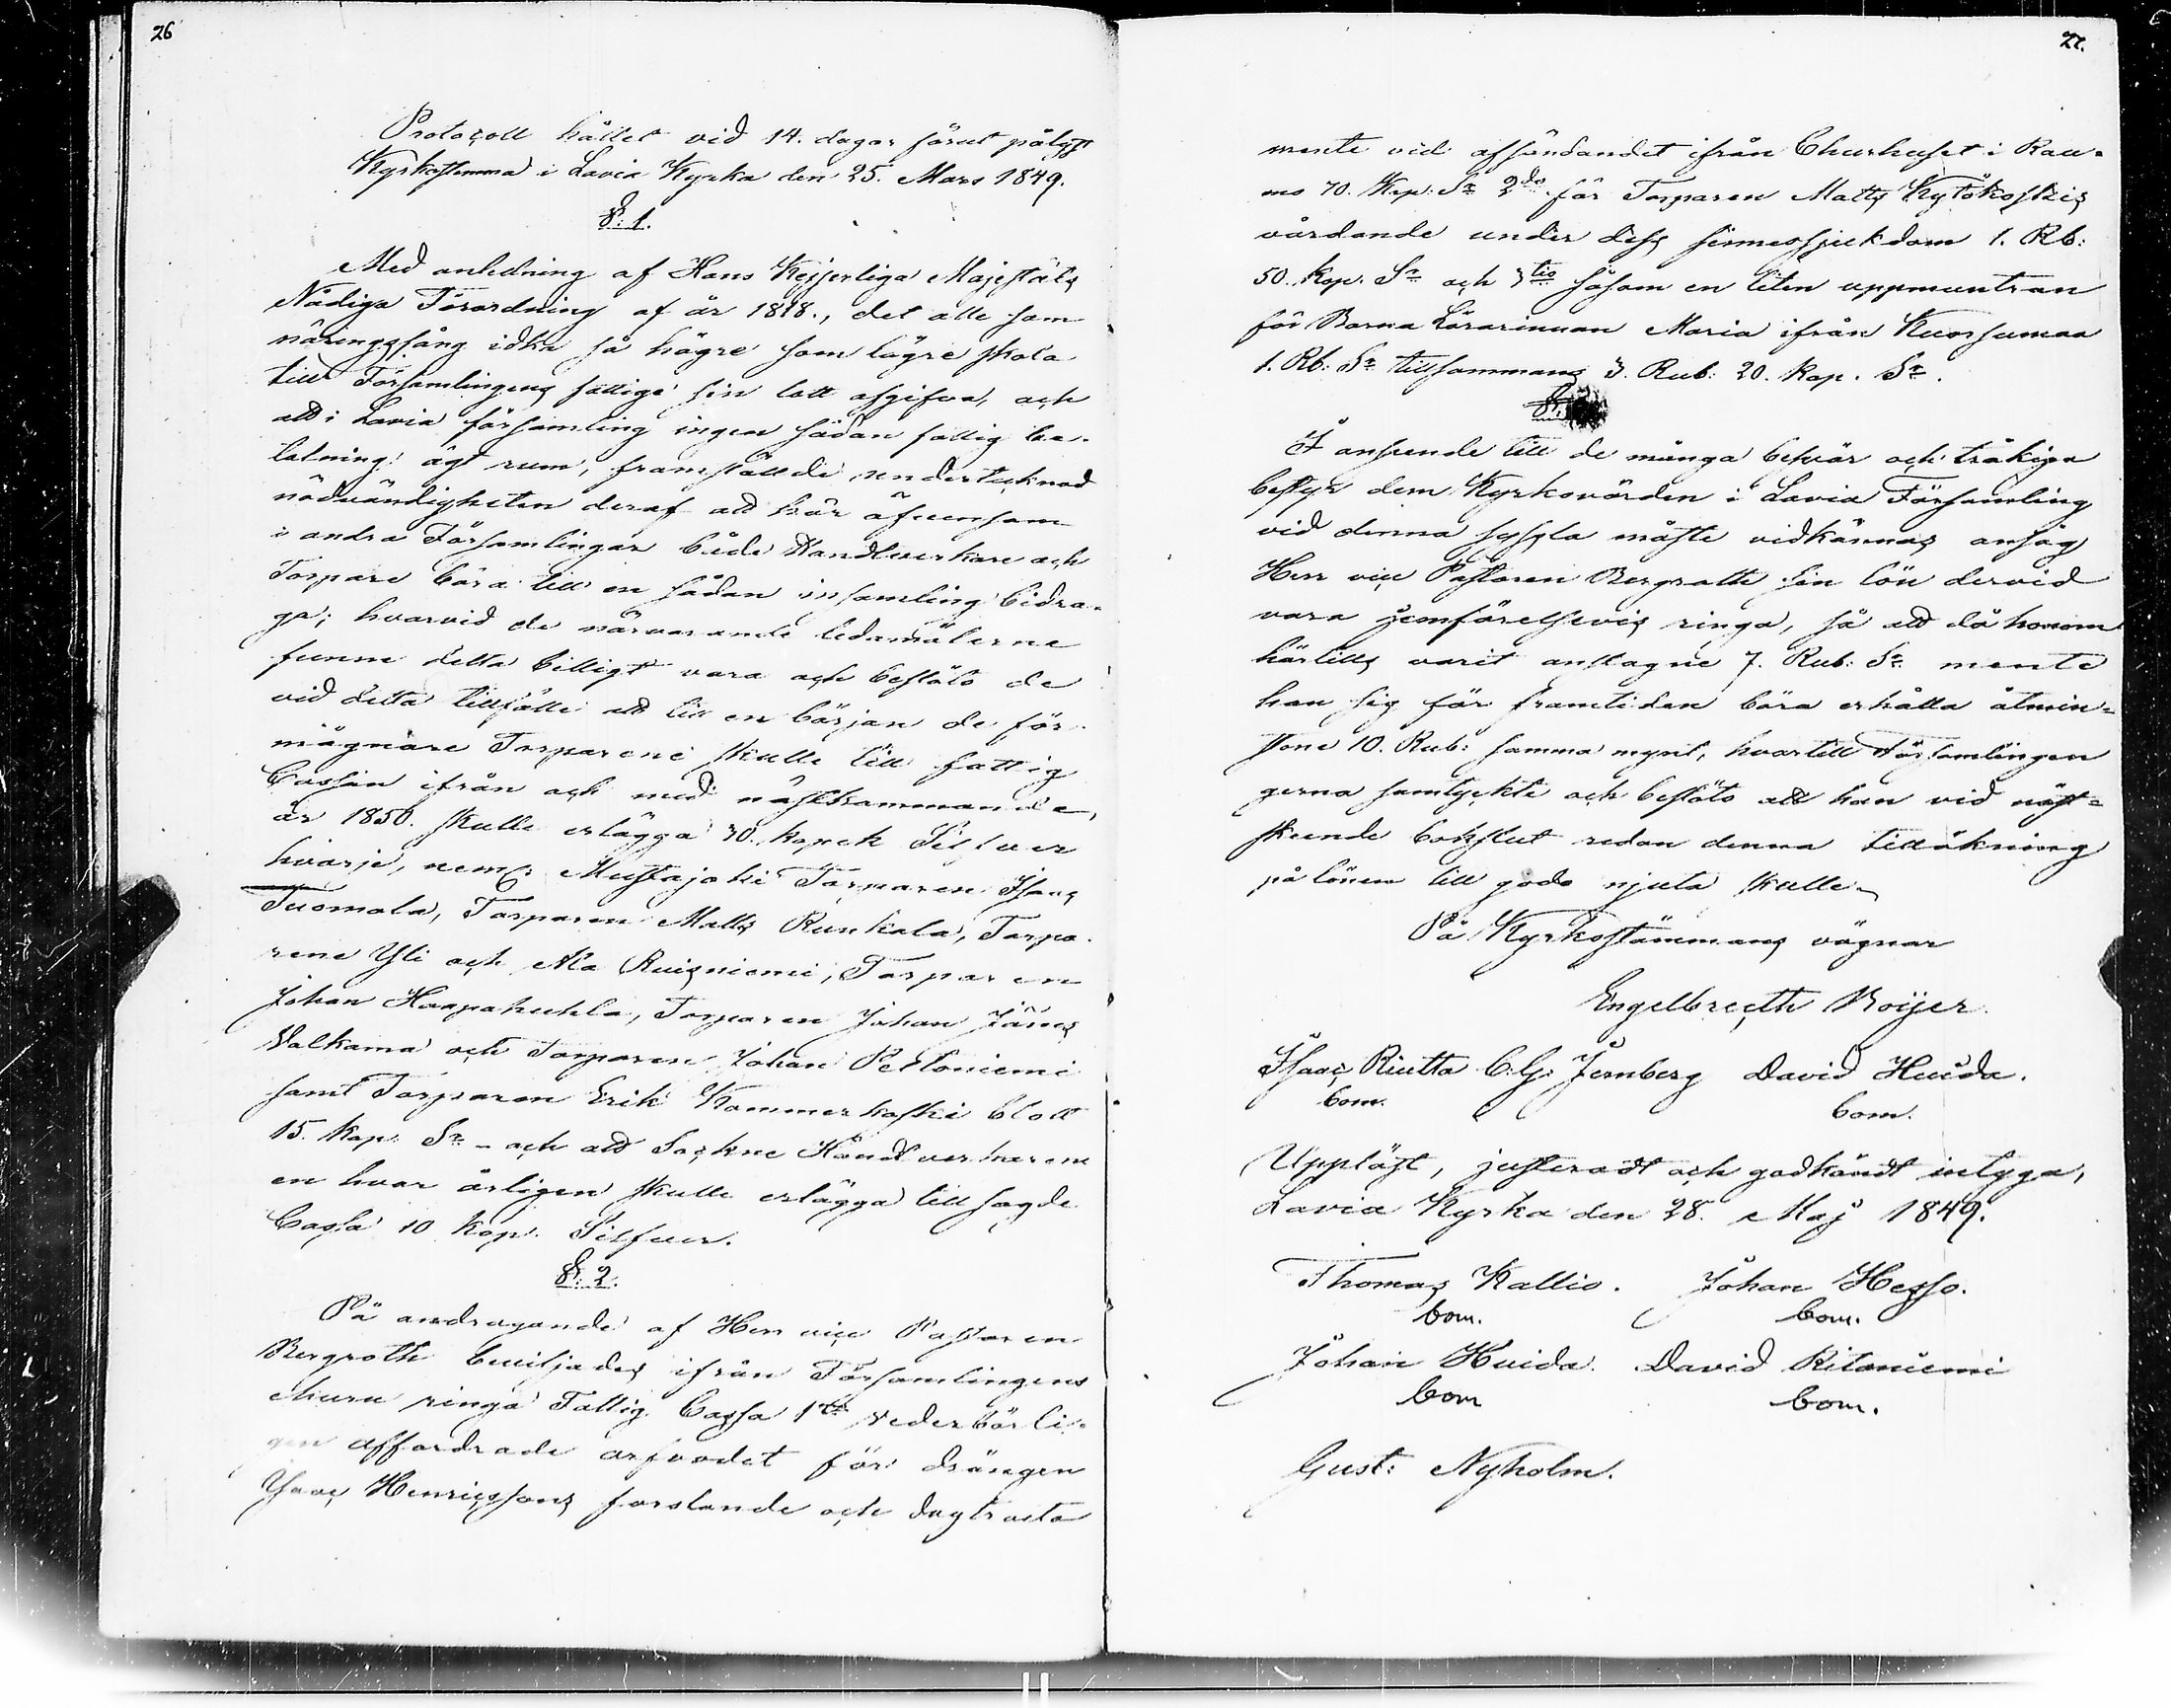 26
Protocoll hållet vid 14. dagar förut pålyst
Kyrkostemma i Lavia Kyrka den 25. Mars 1849.
§: 1.
Med anledning af Hans Kejserliga Majestäts
Nådiga Förordning af år 1818., det alle som
näringsfång idka så högre som lägre skola
till Församlingens fattige sin lott afgifva, och
att i Lavia församling ingen sådan fattig be-
talning ägt rum, framställde undertecknad
nödvändigheten deraf att här äfvensom
i andra Församlingar både Handtverkare och
Torpare böra till en sådan insamling bidra-
ga; hvarvid de närvarande ledamöterne
funno detta billigt vara och beslöto de
vid detta tillfälle att till en början de för-
mögnare Torparene skulle till fattig
Cassan ifrån och med nästkommande
år 1850. skulle erlägga 30. kopek Silfver
hvarje, neml: Mustajoki Torparen Isaac
Tuomola, Torparen Matts Runkala, Torpa-
rene Yli och Ala Ruisniemi, Torparen
Johan Haapahuhla, Torparen Johan Jäne
Valkama och Torparen Johan Peltoniemi
samt Torparen Erik Kammerkoski blott
15. kop: Sr – och att Sockne Handtverkarene
en hvar årligen skulle erlägga till sagde
Cassa 10 kop. Silfver.
§: 2.
På andragande af Herr vice Pastoren
Bergroth beviljades ifrån Församlingens
ehuru ringa Fattig Cassa 1o vederbörli-
gen affordrade arfvodet för drängen
Isaac Henricssons forslande och dagtracta
27.
mente vid afsändandet ifrån Churhuset i Rau-
mo 70. Kop: Sr 2do för Torparen Matts Kytökoskis
vårdande under dess sinnessjukdom 1. Rb:
50. Kop. Sr och 3tio såsom en liten uppmuntran
för Barna Lärarinnan Maria ifrån Kuorsumaa
1. Rb: Sr tillsammans 3. Rub: 20. Kop. Sr.
§:
I anseende till de många besvär och tråkiga
bestyr dem Kyrkovärden i Lavia Församling
vid denna syssla måste vidkännas ansåg
Herr vice Pastoren Bergroth sin lön dervid
vara jemförelsevis ringa, så att då honom
härtills varit anslagne 7. Rub: Sr mente
han sig för framtiden böra erhålla åtmin-
stone 10. Rub: samma mynt, hvartill Församlingen
gerna samtyckte och beslöto att han vid näst-
skeende bokslut redan denna tillökning
på lönen till godo njuta skulle.
På Kyrkostämmans vägnar
Engelbrecth Roijer.
Isaac Riutta C.G. Jernberg David Huida.
bom. bom.
Uppläst, justeradt och godkändt intyga,
Lavia Kyrka den 28. Maj 1849.
Thomas Kallio. Johan Hesso.
bom. bom.
Johan Huida. David Ritaniemi
bom bom.
Gust: Nyholm.